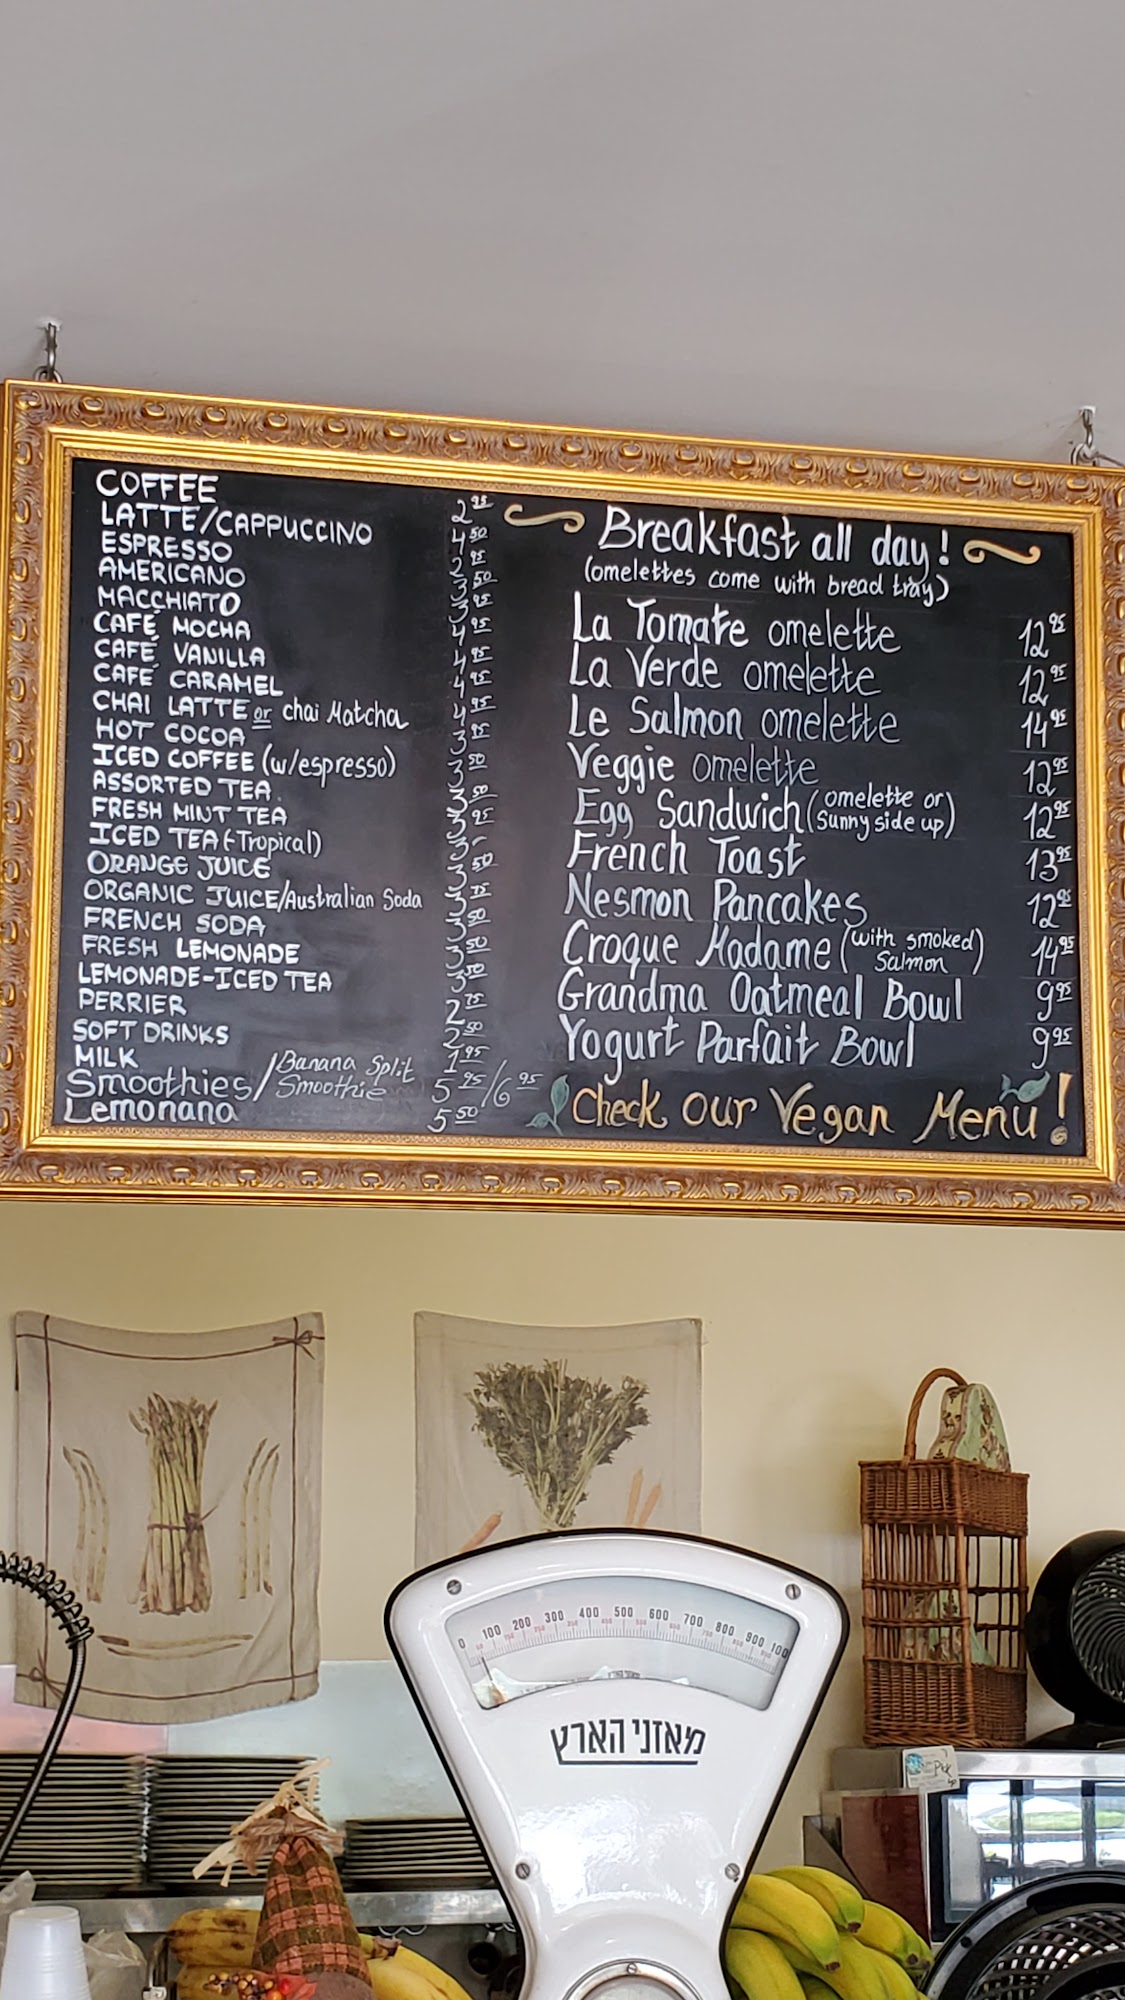 COFFEE 2 95
LATTE/CAPPUCCINO 4 50
ESPRESSO 2 95
AMERICANO 3 50
MACCHIATO 3 95
CAFÉ MOCHA 4 95
CAFÉ VANILLA 4 95
CAFÉ CARAMEL 4 95
CHAI LATTE or chai Matcha 4 95
HOT COCOA 3 95
ICED COFFEE (w/espresso) 3 50
ASSORTED TEA 3 50
FRESH MINT TEA 3 95
ICED TEA (-Tropical) 3-
ORANGE JUICE 3 50
ORGANIC JUICE/Australian Soda 3 75
FRENCH SODA 3 50
FRESH LEMONADE 3 50
LEMONADE-ICED TEA 3 50
PERRIER 2 75
SOFT DRINKS 2 50
MILK 1 95
Smoothies/Banana Split Smoothie 5 95/6 95
Lemonana 5 50
Breakfast all day!
(omelettes come with bread tray)
La Tomate omelette 12 95
La Verde omelette 12 95
Le Salmon omelette 14 95
Veggie omelette 12 95
Egg Sandwich (omelette or Sunny side up) 12 95
French Toast 13 95
Nesmon Pancakes 12 95
Croque Madame (with smoked Salmon) 14 95
Grandma Oatmeal Bowl 9 95
Yogurt Parfait Bowl 9 95
Check our Vegan Menu!
0 100 200 300 400 500 600 700 800 900 100
מאזני הארץ